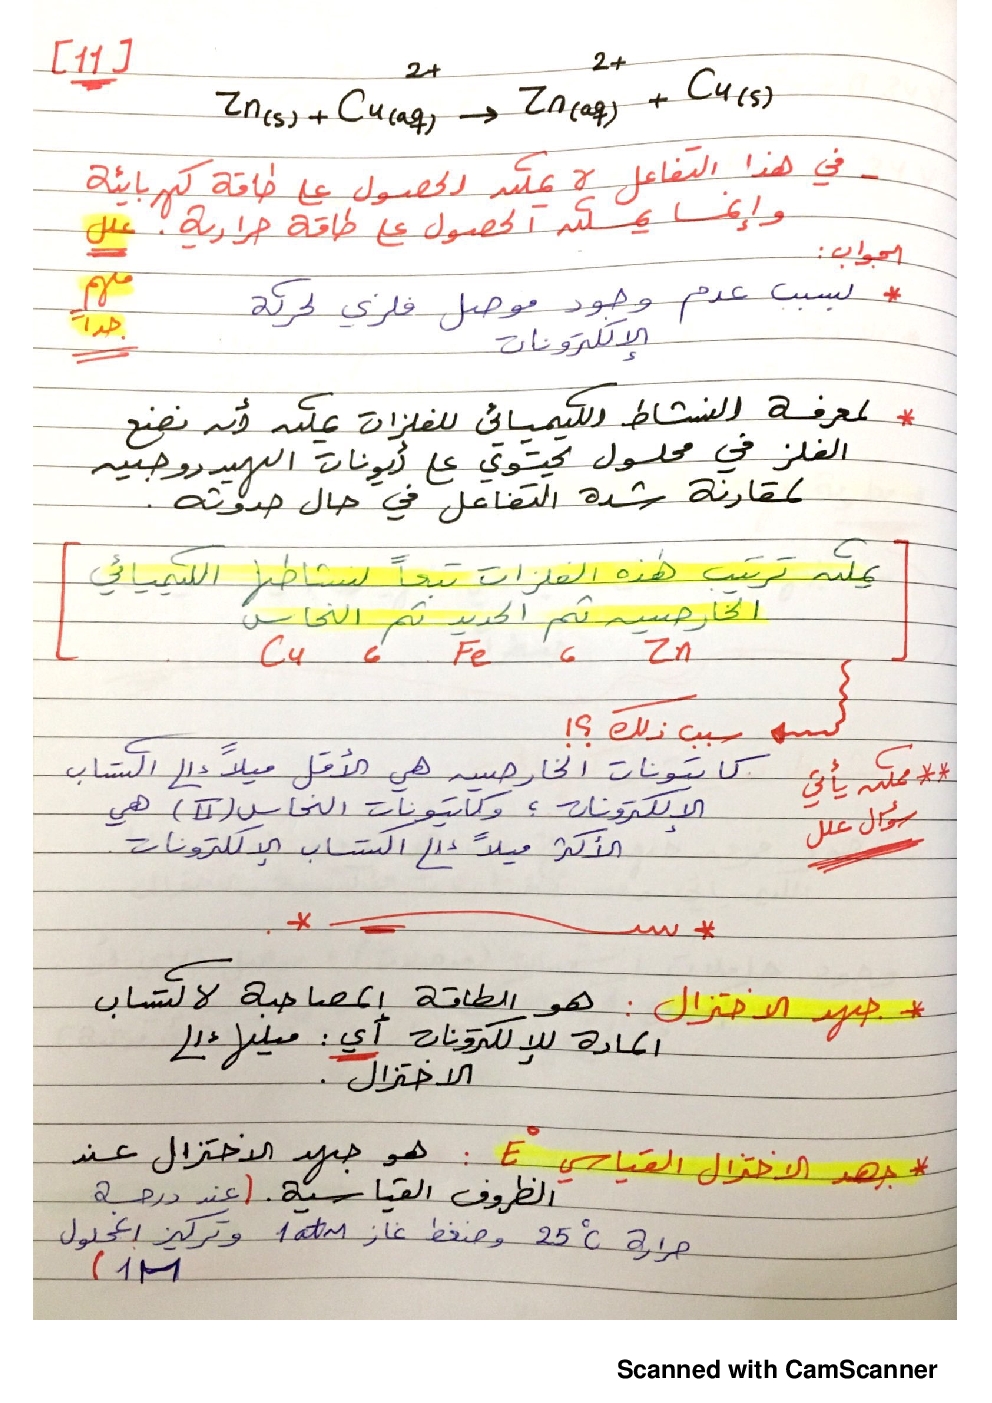 [11]
Zn(s) + Cu²⁺(aq) → Zn²⁺(aq) + Cu(s)
- في هذا التفاعل لا يمكن الحصول على طاقة كهربائية
وإنما يمكن الحصول على طاقة حرارية. علل
الجواب:
* بسبب عدم وجود موصل فلزي لحركة
الإلكترونات
مهم
جداً
* لمعرفة النشاط الكيميائي للفلزات يمكن أن نضع
الفلز في محلول يحتوي على أيونات الهيدروجين
لمقارنة شدة التفاعل في حال حدوثه.
[يمكن ترتيب هذه الفلزات تبعاً لنشاطها الكيميائي
الخارصين ثم الحديد ثم النحاس
Zn ، Fe ، Cu]
سبب ذلك ؟!
** ممكن يأتي
سؤال علل
كاتيونات الخارصين هي الأقل ميلاً إلى اكتساب
الإلكترونات ؛ وكاتيونات النحاس (II) هي
الأكثر ميلاً إلى اكتساب الإلكترونات.
* جهد الاختزال : هو الطاقة المصاحبة لاكتساب
المادة للإلكترونات أي : ميلها إلى
الاختزال.
* جهد الاختزال القياسي E° : هو جهد الاختزال عند
الظروف القياسية. (عند درجة
حرارة 25°C وضغط غاز 1atm وتركيز المحلول
1M)
Scanned with CamScanner